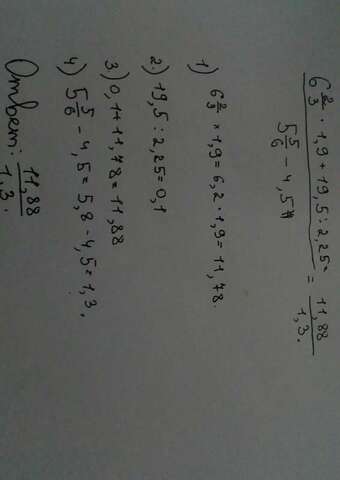 6 2/3 · 1,9 + 19,5 : 2,25 = 11,88
5 5/6 - 4,5 = 1,3.
1) 6 2/3 × 1,9 = 6,2 · 1,9 = 11,78.
2) 19,5 : 2,25 = 0,1
3) 0,1 + 11,78 = 11,88
4) 5 5/6 - 4,5 = 5,8 - 4,5 = 1,3.
Ответ: 11,88/1,3.